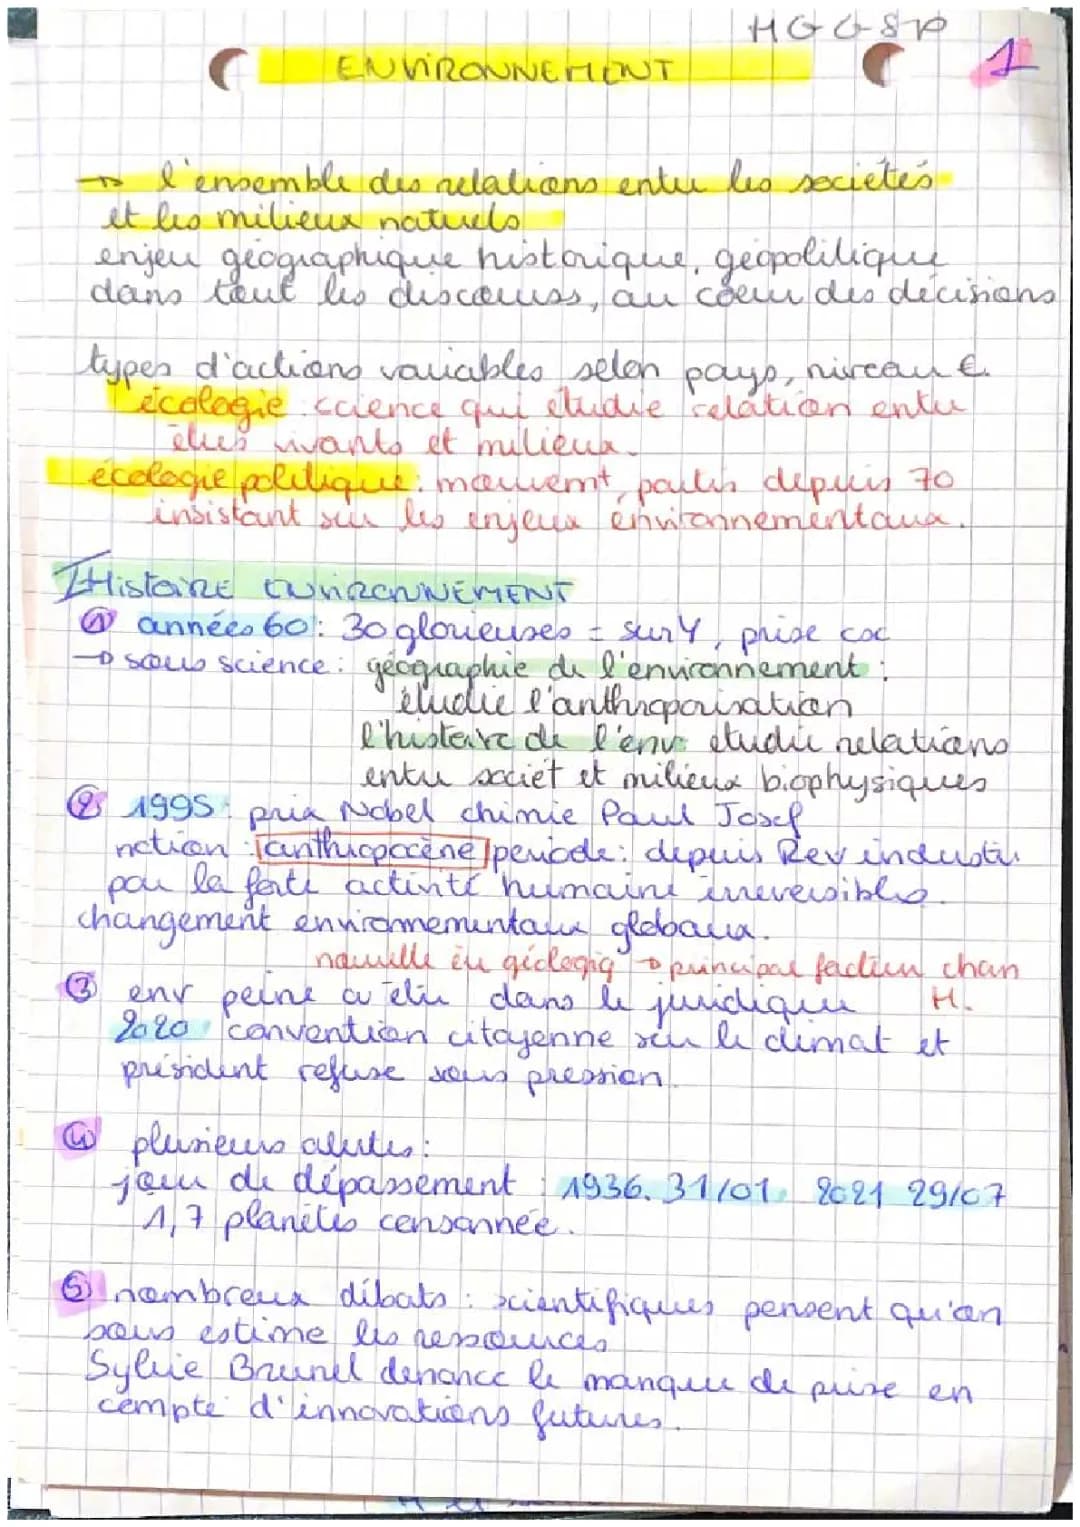 HGGSP
ENVIRONNEMENT
1
→ l'ensemble des relations entre les sociétés
et les milieux naturels
enjeu géographique historique, géopolitique
dans tout les discours, au coeur des décisions
types d'actions variables selon pays, niveau €.
écologie : science qui étudie relation entre
êtres vivants et milieux.
écologie politique : mouvemt, partis depuis 70
insistant sur les enjeux environnementaux.
I Histoire ENVIRONNEMENT
① années 60 : 30 glorieuses = sur Y, prise csc
→ sous science : géographie de l'environnement :
étudie l'anthroporisation
l'histoire de l'env étudie relations
entre sociét et milieux biophysiques
② 1995 : prix Nobel chimie Paul Josef
notion : anthropocène période : depuis Rev industr
par la forte activité humaine irreversibles
changement environnementaux globaux.
nouvelle ère géologiq → principal facteur chan
H.
③ env peine a être dans le juridique
2020 convention citoyenne sur le climat et
président refuse sous pression.
④ plusieurs alertes :
jour de dépassement : 1936. 31/01 2021 29/07
1,7 planètes consonnée.
⑤ nombreux débats : scientifiques pensent qu'on
sous estime les ressources
Sylvie Brunel denonce le manque de prise en
compte d'innovations futures.